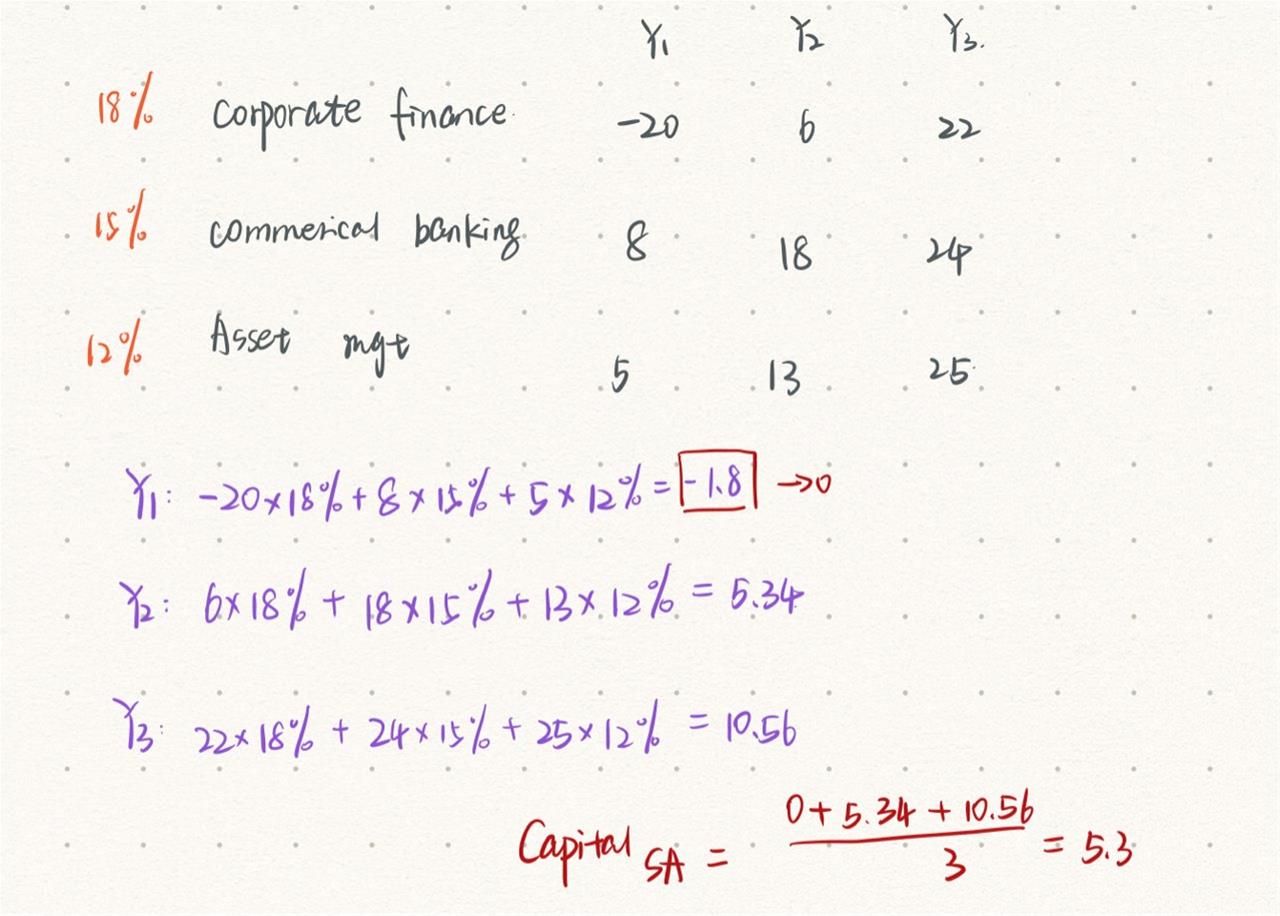 Y1 Y2 Y3.
18% Corporate finance -20 6 22
15% commerical banking 8 18 24
12% Asset mgt 5 13 25
Y1: -20×18% + 8×15% + 5×12% = -1.8 →0
Y2: 6×18% + 18×15% + 13×12% = 5.34
Y3: 22×18% + 24×15% + 25×12% = 10.56
Capital SA = (0 + 5.34 + 10.56) / 3 = 5.3